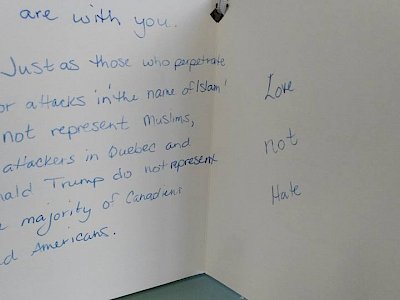 are with you.
Just as those who perpetrate
or attacks in 'the name of Islam'
not represent Muslims,
attackers in Quebec and
nald Trump do not represent
majority of Canadians
d Americans.
Love
not
Hate